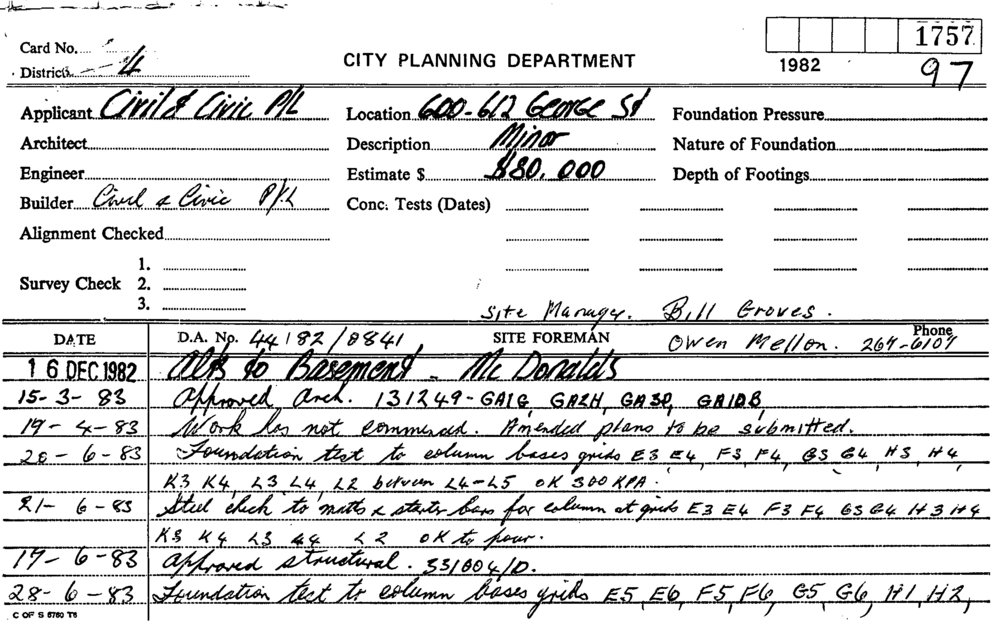 1757
Card No.
CITY PLANNING DEPARTMENT
1982
97
District 4
Applicant Civil & Civic P/L Location 600-612 George St Foundation Pressure
Architect Description Minor Nature of Foundation
Engineer Estimate $ $80,000 Depth of Footings
Builder Civil & Civic P/L Conc. Tests (Dates)
Alignment Checked
1.
Survey Check 2.
3.
Site Manager. Bill Groves.
DATE D.A. No. 44/82/0841 SITE FOREMAN Owen Mellon. Phone 267-6107
16 DEC 1982 Alts to Basement - McDonalds
15-3-83 Approved Arch. 131249-GA1G, GA2H, GA3D, GA10B,
19-4-83 Work has not commenced. Amended plans to be submitted.
20-6-83 Foundation test to column bases grids E3 E4, F3, F4, G3 G4, H3, H4,
K3 K4, L3 L4, L2 between L4-L5 OK 300 KPA.
21-6-83 Steel check to matts & starter bars for column at grids E3 E4 F3 F4 G3 G4 H3 H4
K3 K4 L3 44 L2 OK to pour.
17-6-83 Approved structural. 331004/D.
28-6-83 Foundation test to column bases grids E5, E6, F5, F6, G5 G6, H1, H2,
C OF S 8760 T6